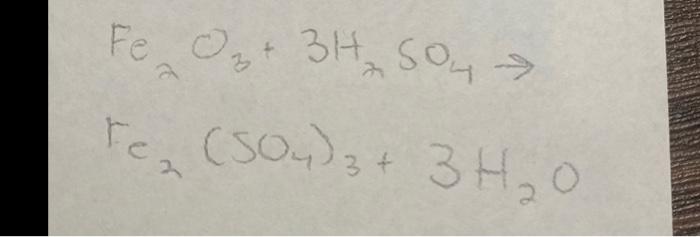 Fe₂O₃ + 3H₂SO₄ →
Fe₂(SO₄)₃ + 3H₂O